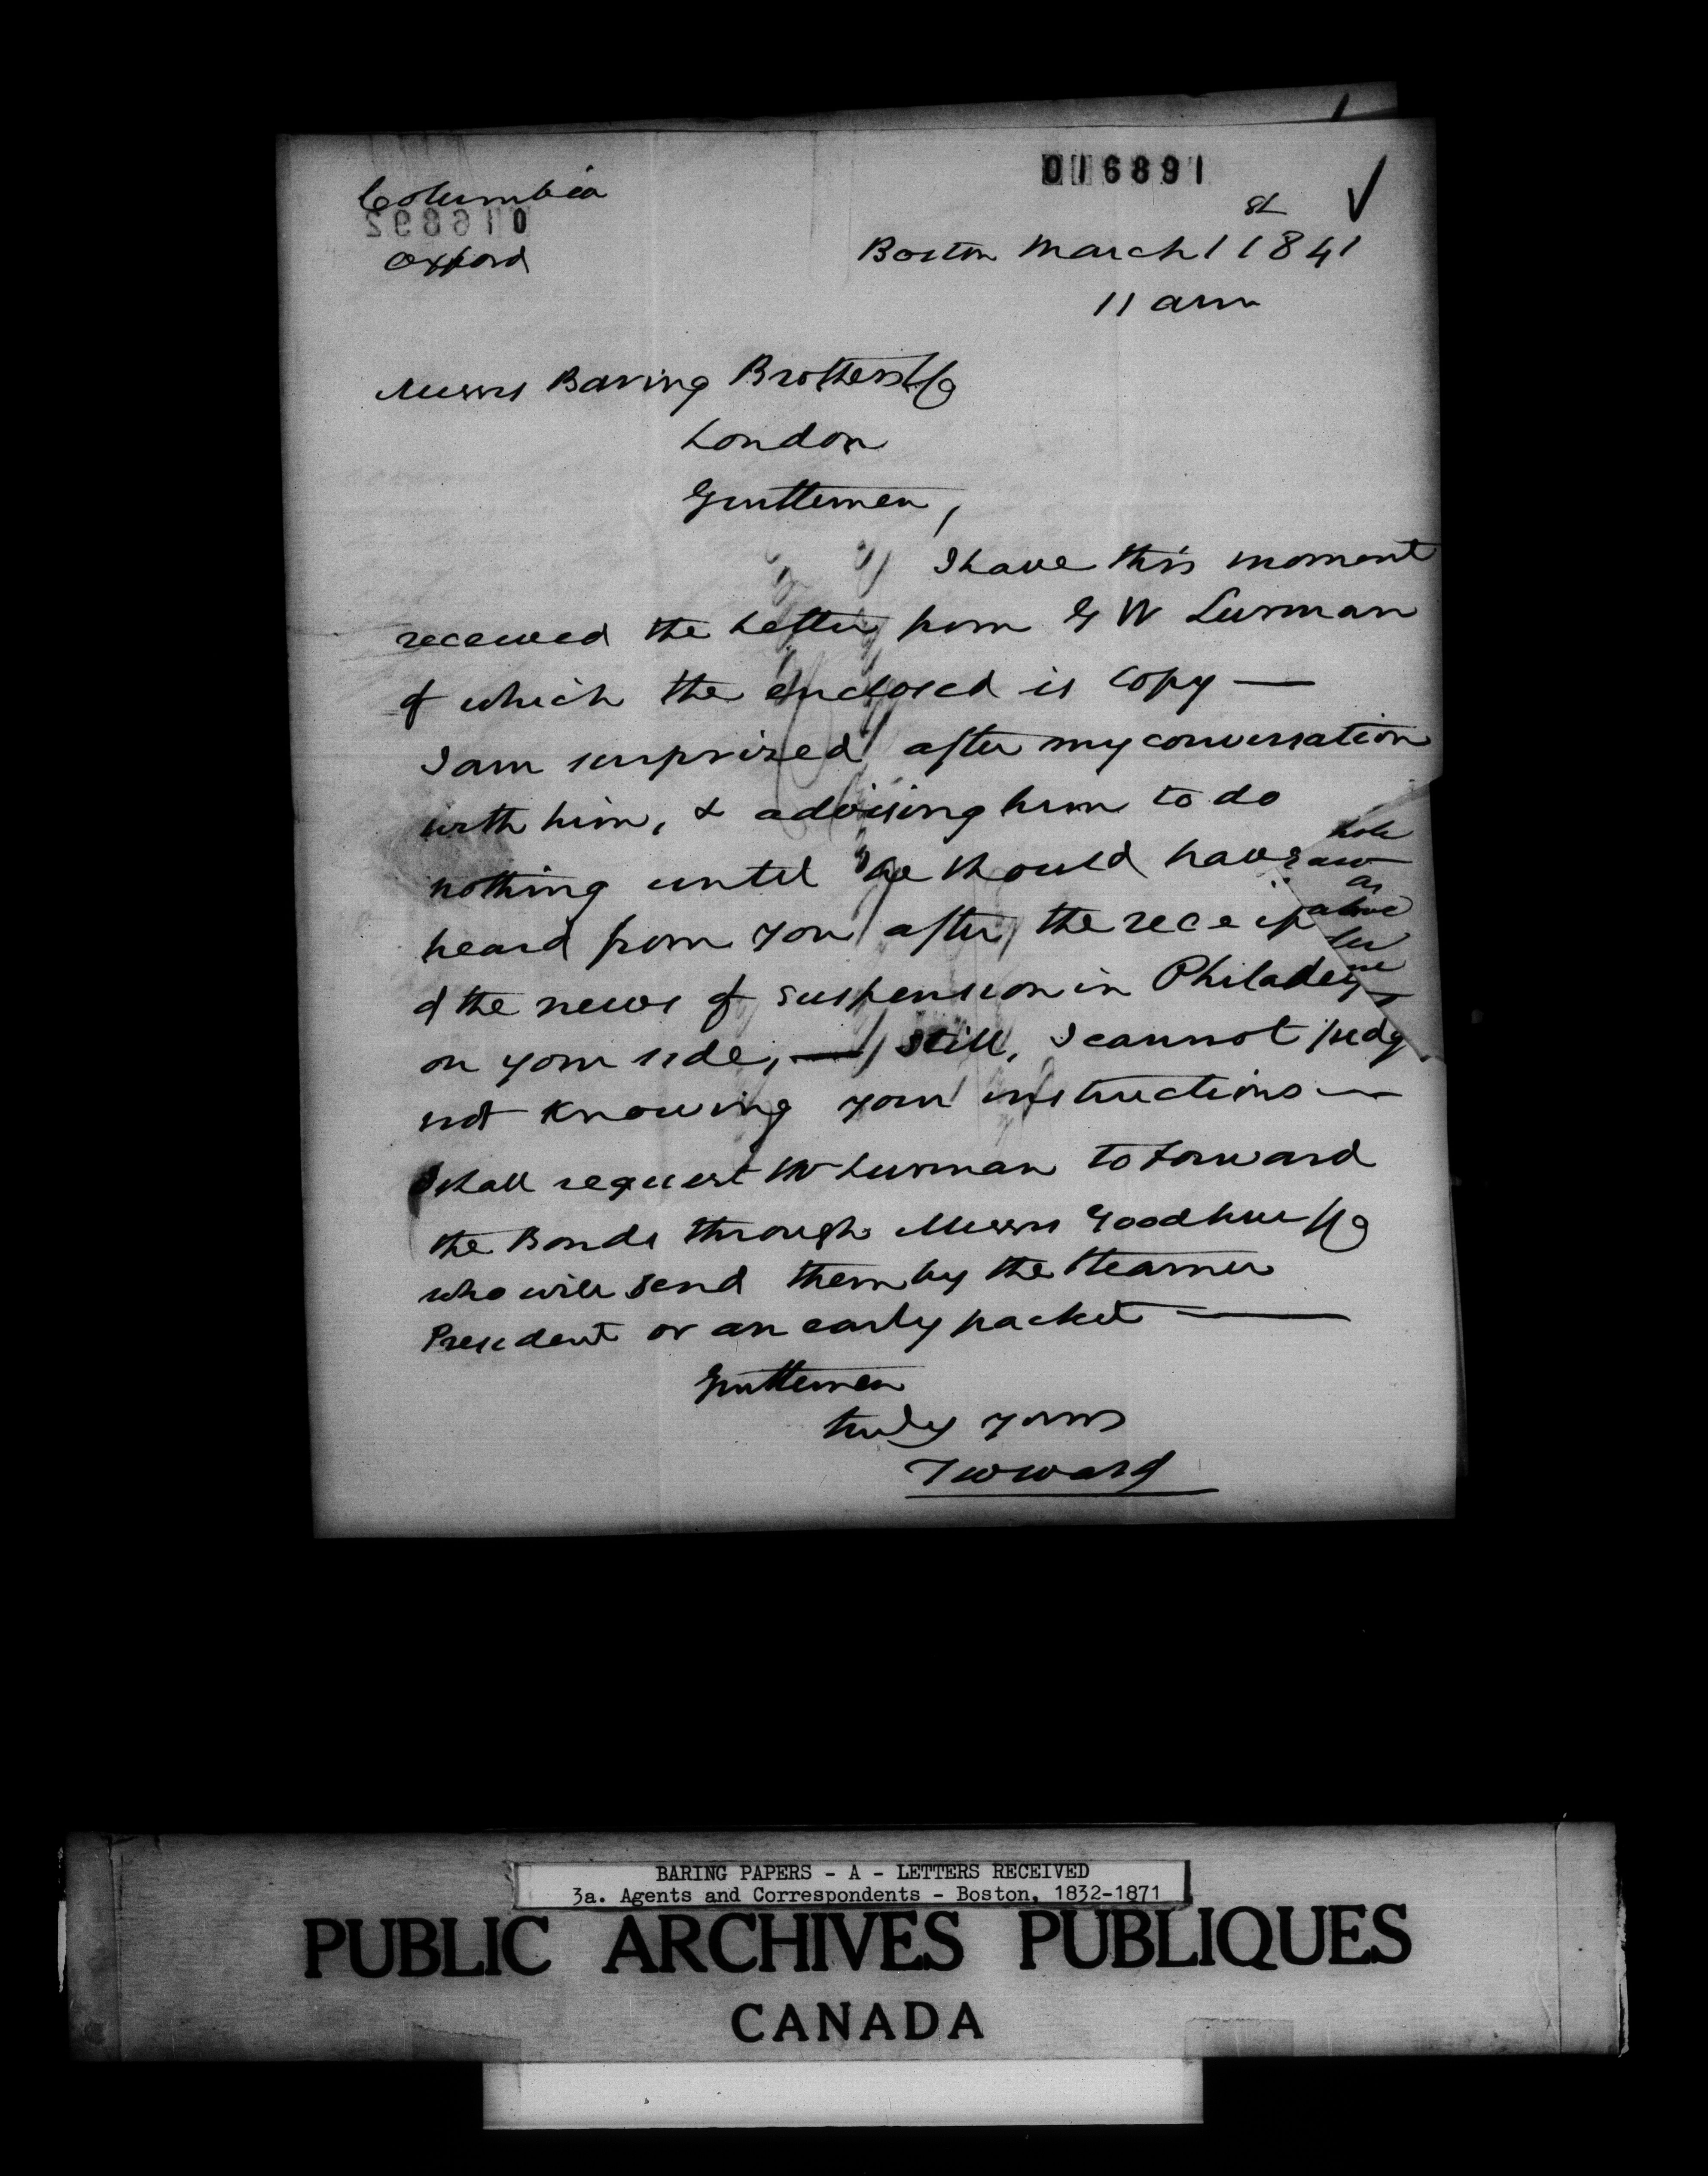 016891
Columbia
016892
Oxford
st
Boston March 1 1841
11 am
Messrs Baring Brothers & Co
London
Gentlemen,
I have this moment
received the Letter from G W Lurman
of which the enclosed is copy —
I am surprized after my conversation
with him, & advising him to do
nothing until he should have
heard from you after the receip
of the news of suspension in Philadel
on your side, — still, I cannot judg
not knowing your instructions —
I shall request Mr Lurman to forward
the Bonds through Messrs Goodhue & Co
who will send them by the steamer
President or an early packet —
Gentlemen
truly yours
T W Ward
BARING PAPERS - A - LETTERS RECEIVED
3a. Agents and Correspondents - Boston, 1832-1871
PUBLIC ARCHIVES PUBLIQUES
CANADA